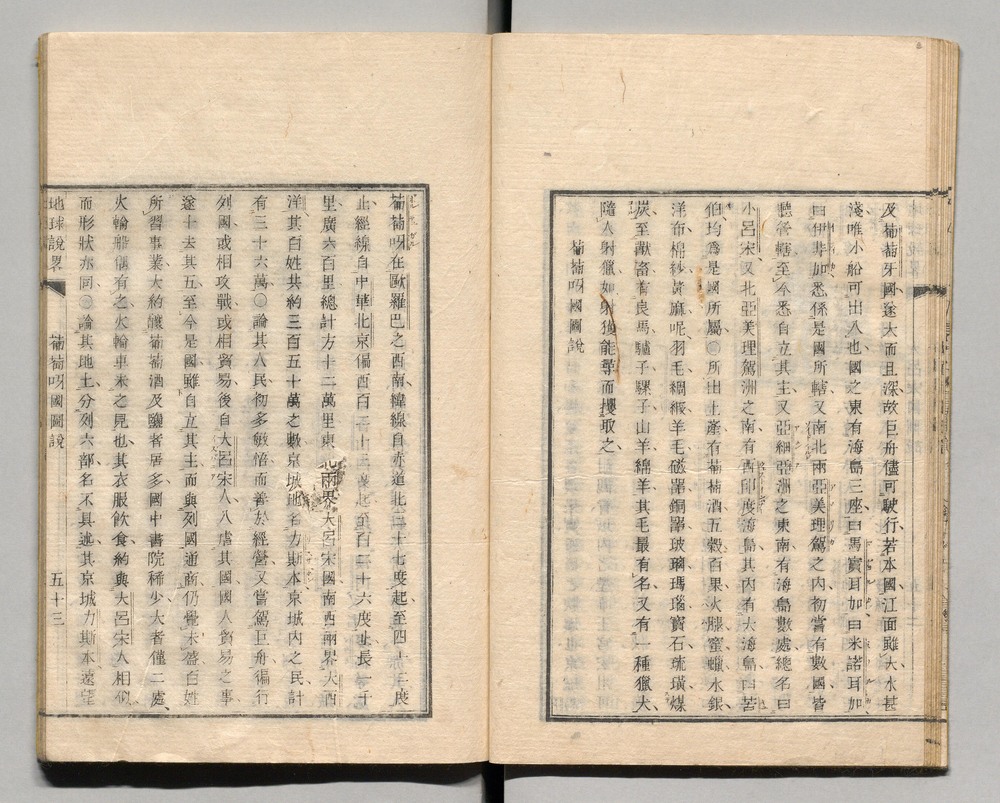 及葡萄牙國遂大而且深故巨舟儘可駛行若本國江面雖大水甚
淺唯小船可出入也國之東有海島三座曰馬實耳加曰米諾耳加
曰伊非加悉係是國所轄又南北兩亞美理駕之內初嘗有數國皆
聽管轄至今悉自立其主又亞細亞洲之東南有海島數處總名曰
小呂宋又北亞美理駕洲之南有西印度海島其內有大海島曰苦
伯均為是國所屬〇所出土產有葡萄酒五穀百果火腿蜜蠟水銀
洋布棉紗黃麻呢羽毛綢緞羊毛磁器銅器玻璃瑪瑙寶石琉璜煤
炭至獸畜有良馬驢子騾子山羊綿羊其毛最有名又有一種獵犬
隨人射獵如射獲能尋而攫取之
葡萄呀國圖說
葡萄呀在歐羅巴之西南緯線自赤道北三十七度起至四十二度
止經線自中華北京偏西百二十三度起至百二十六度止長一千
里廣六百里總計方十二萬里東北兩界大呂宋國南西兩界大西
洋其百姓共約三百五十萬之數京城地名力斯本京城內之民計
有三十六萬〇論其人民初多敏悟而善於經營又嘗駕巨舟徧行
列國或相攻戰或相貿易後自大呂宋人入虐其國國人貿易之事
遂十去其五至今是國雖自立其主而與列國通商仍覺未盛百姓
所習事業大約釀葡萄酒及鹽者居多國中書院稀少大者僅二處
火輪船偶有之火輪車未之見也其衣服飲食約與大呂宋人相似
而形狀亦同〇論其地土分列六部名不具述其京城力斯本遠望
地球說畧 葡萄呀國圖說 五十三